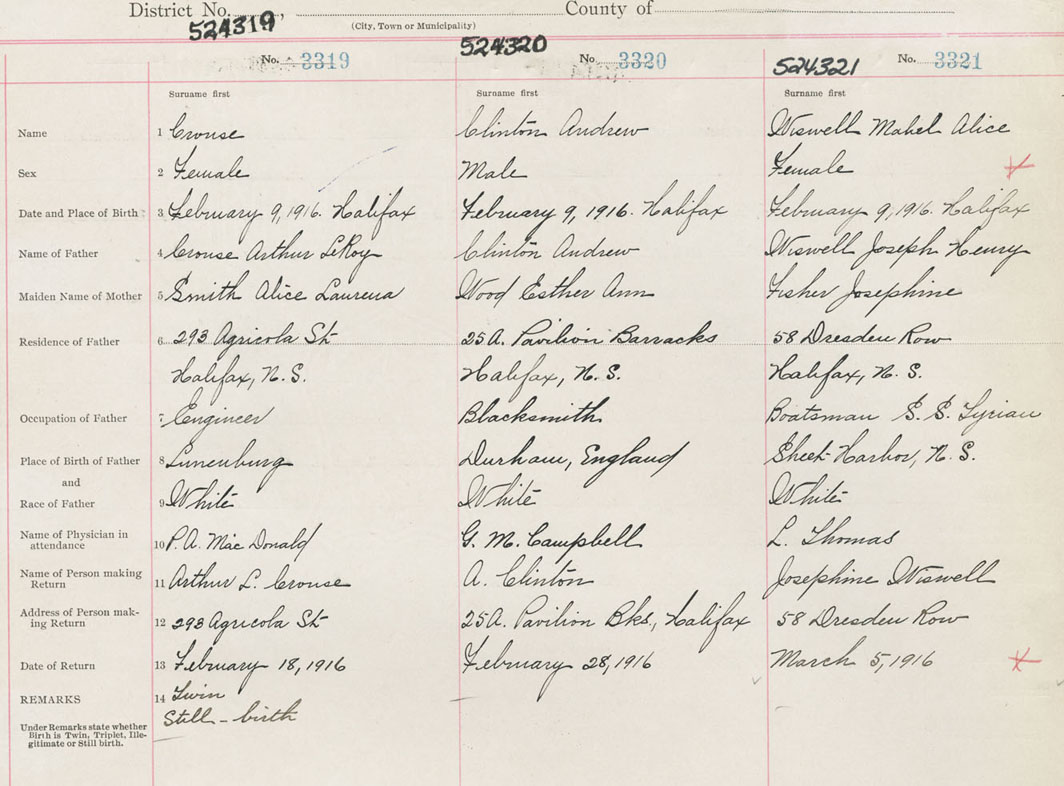 District No. County of
(City, Town or Municipality)
524319 524320 524321
No. 3319 No. 3320 No. 3321
Surname first Surname first Surname first
Name 1 Crouse Clinton Andrew Wiswell Mabel Alice
Sex 2 Female Male Female
Date and Place of Birth 3 February 9, 1916. Halifax February 9, 1916. Halifax February 9, 1916. Halifax
Name of Father 4 Crouse Arthur LeRoy Clinton Andrew Wiswell Joseph Henry
Maiden Name of Mother 5 Smith Alice Laurena Wood Esther Ann Fisher Josephine
Residence of Father 6 293 Agricola St 25A. Pavilion Barracks 58 Dresden Row
Halifax, N. S. Halifax, N. S. Halifax, N. S.
Occupation of Father 7 Engineer Blacksmith Boatsman S. S. Syrian
Place of Birth of Father 8 Lunenburg Durham, England Sheet Harbor, N. S.
and
Race of Father 9 White White White
Name of Physician in
attendance 10 P. A. MacDonald G. M. Campbell L. Thomas
Name of Person making
Return 11 Arthur L. Crouse A. Clinton Josephine Wiswell
Address of Person mak-
ing Return 12 293 Agricola St 25A. Pavilion Bks., Halifax 58 Dresden Row
Date of Return 13 February 18, 1916 February 28, 1916 March 5, 1916
REMARKS 14 Twin
Still-birth
Under Remarks state whether
Birth is Twin, Triplet, Ille-
gitimate or Still birth.